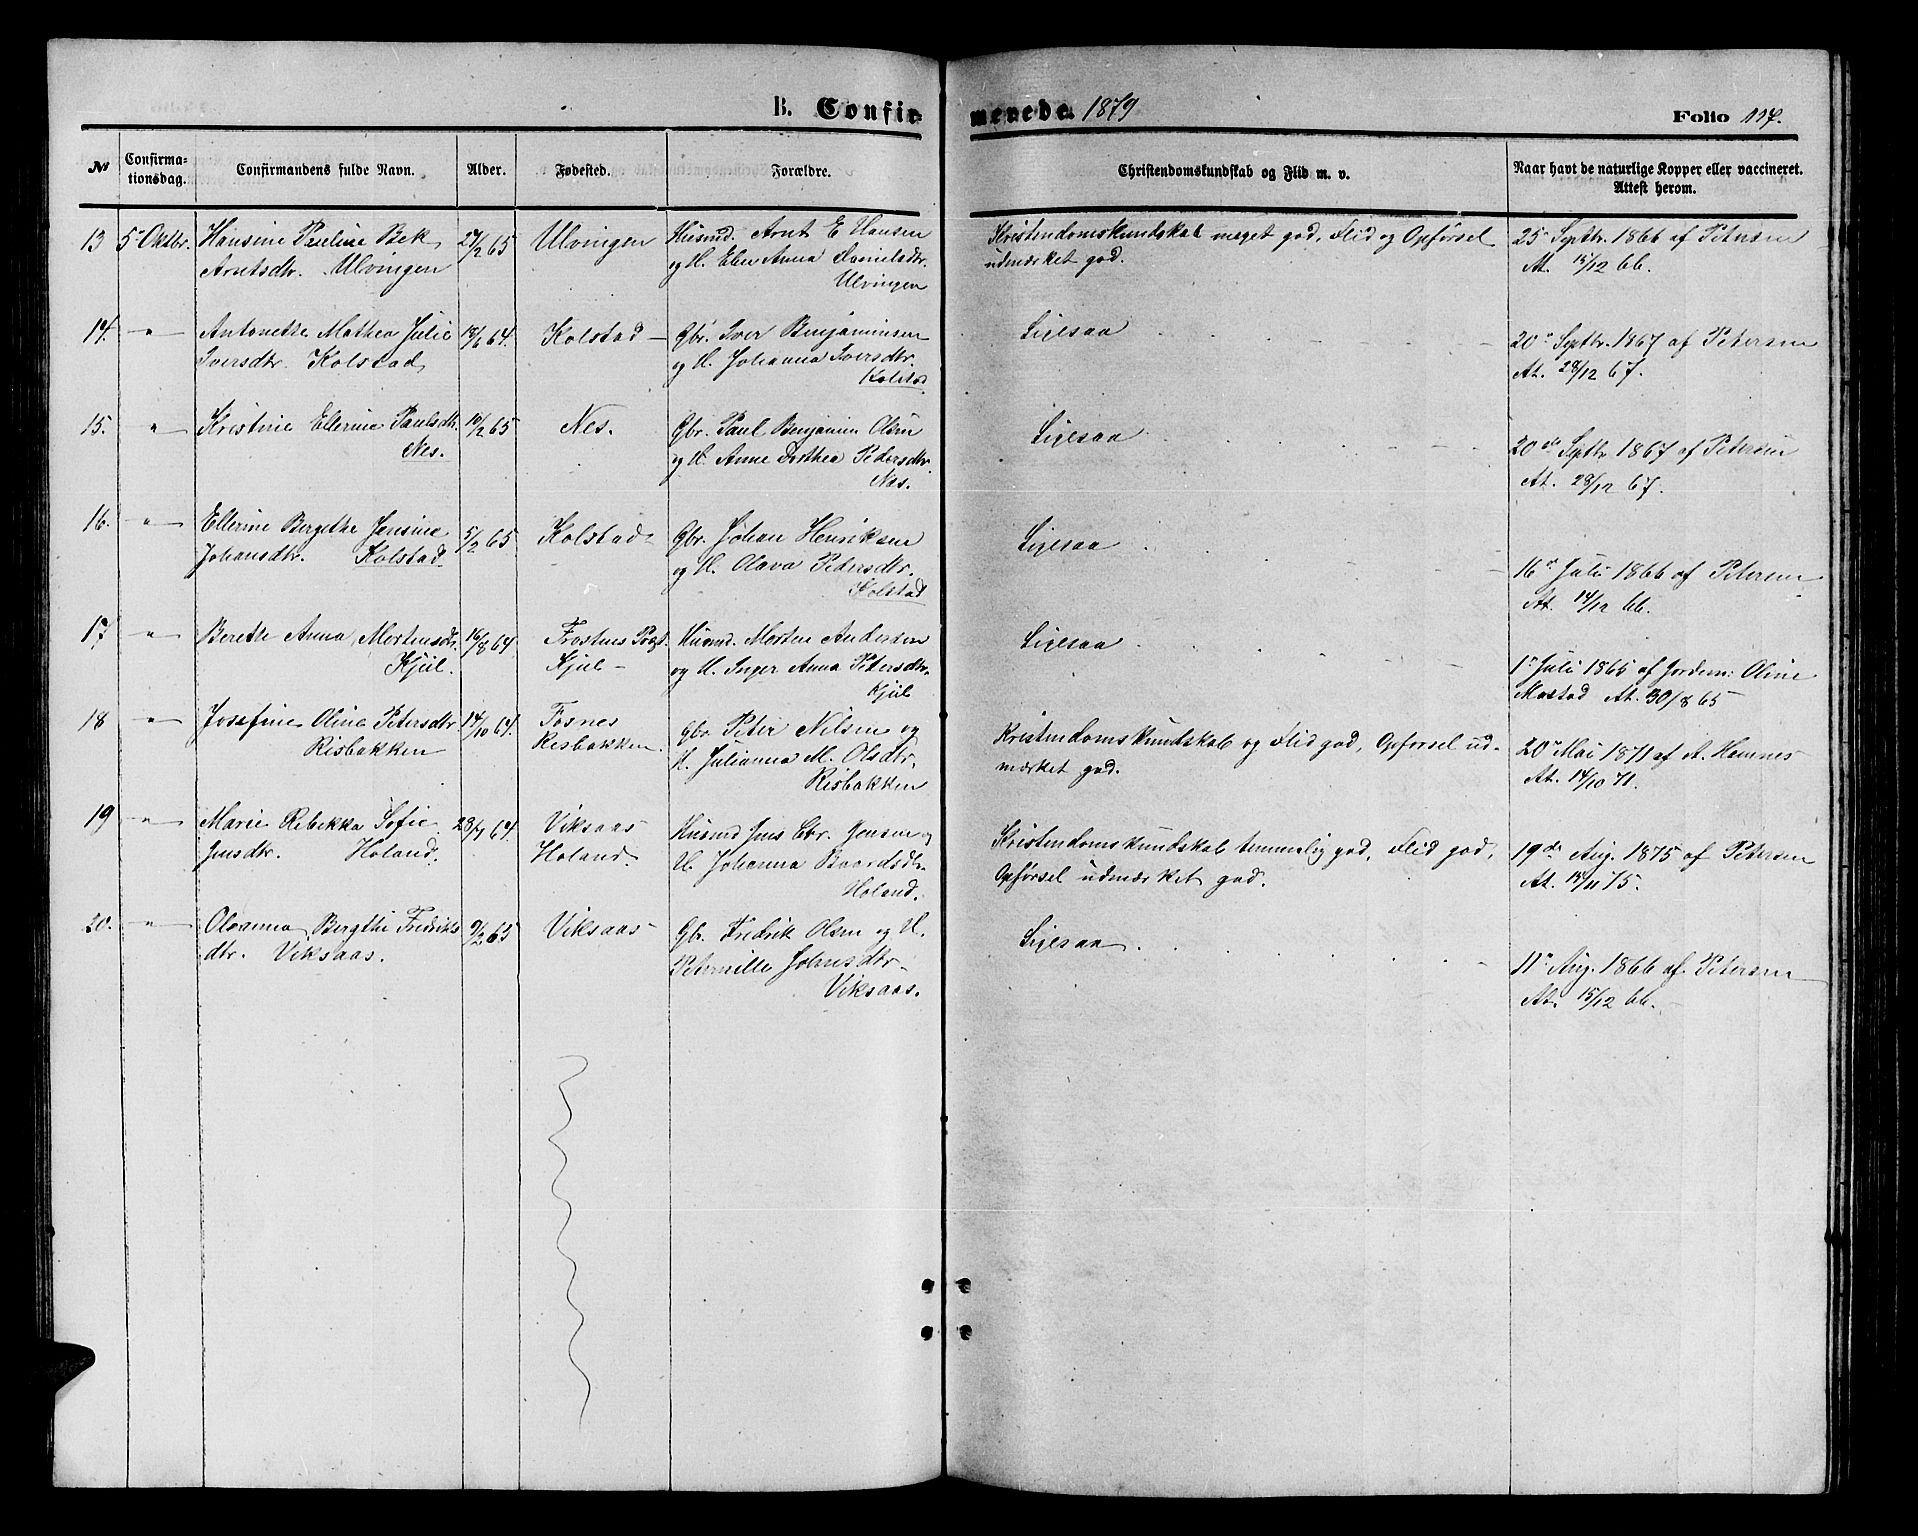 B. Confirmerede. 1879
Folio 117.
№
Confirma-
tionsdag.
Confirmandens fulde Navn.
Alder.
Fødested.
Forældre.
Christendomskundskab og Flid m. v.
Naar havt de naturlige Kopper eller vaccineret.
Attest herom.
13 5t Oktbr. Hansine Pauline Bek 27/2 65 Ulvingen Husmd. Arnt E Hansen Kristendomskundskab meget god, Flid og Opførsel 25 Septbr. 1866 af Petersen
Arntsdtr. Ulvingen og H. Elen Anna Danielsdtr. udmærket god. At. 15/12 66.
Ulvingen
14. " Antonette Mathea Julie 18/6 64. Kolstad Gbr. Iver Benjaminsen Ligesaa 20de Septbr. 1867 af Petersen
Iversdtr. Kolstad og H. Johanna Iversdtr. At. 28/12 67.
Kolstad
15. " Kristine Ellerine Paulsdtr. 10/2 65 Nes. Gbr. Paul Benjamin Olsen Ligesaa 20de Septbr 1867 af Petersen
Nes. og H. Anne Dorthea Pedersdtr. At. 28/12 67.
Nes.
16. " Ellerine Bergithe Jensine 5/2 65 Kolstad Gbr. Johan Henriksen Ligesaa
Johansdtr. Kolstad og H. Olava Pedersdtr. 16de Juli 1866 af Petersen
Kolstad At. 14/12 66.
17 " Berethe Anna Mortensdtr. 16/8 64 Frostnes Kjul Husmd. Morten Andersen Ligesaa
Kjul. og H. Inger Anna Petersdtr. 1de Juli 1865 af Jordem: Oline
Kjul Mostad At. 30/8 65
18 " Josefine Oline Petersdtr. 14/10 64. Fosnes Gbr. Peter Nilsen og Kristendomskundskab og Flid god, Opførsel ud- 20de Mai 1871 af A. Hamnes
Risbakken Risbakken. H. Julianna M. Olsdtr. mærket god. At. 14/10 71.
Risbakken
19 " Marie Rebekka Sofie 28/7 64. Viksaas Husmd Jens Chr. Jensen og Kristendomskundskab temmelig god, Flid god, 19de Aug. 1875 af Petersen
Jensdtr. Holand. Holand. H. Johanna Baardsdtr. Opførsel udmærket god. At. 15/11 75.
Holand.
20. " Oleanna Bergithe Fredriks 9/2 65 Viksaas Gbr. Fredrik Olsen og H. Ligesaa
dtr. Viksaas. Peternille Johnsdtr. 11de Aug. 1866 af Petersen
Viksaas. At. 15/12 66.